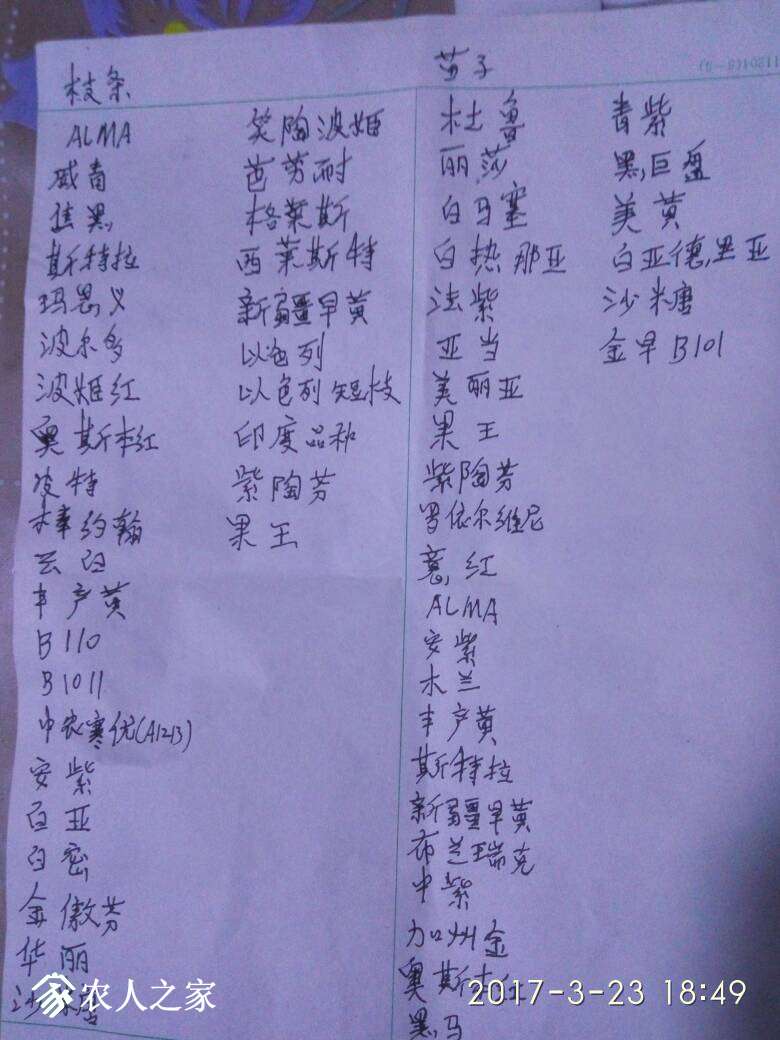 枝条
ALMA
威青
佳黑
斯特拉
玛思义
波尔多
波姬红
奥斯本红
皮特
棒约翰
云白
丰产黄
B110
B1011
中农寒优(A1213)
安紫
白亚
白密
金傲芬
华丽
沙米唐
紫陶波姬
芭劳耐
格莱斯
西莱斯特
新疆早黄
以色列
以色列短枝
印度品种
紫陶芬
果王
苗子
杜鲁
丽莎
白马塞
白热那亚
法紫
亚当
美丽亚
果王
紫陶芬
罗依尔维尼
意红
ALMA
安紫
木兰
丰产黄
斯特拉
新疆早黄
布兰瑞克
中紫
加州金
奥斯本红
黑马
青紫
黑巨盘
美黄
白亚德里亚
沙米唐
金早B101
农人之家
2017-3-23 18:49